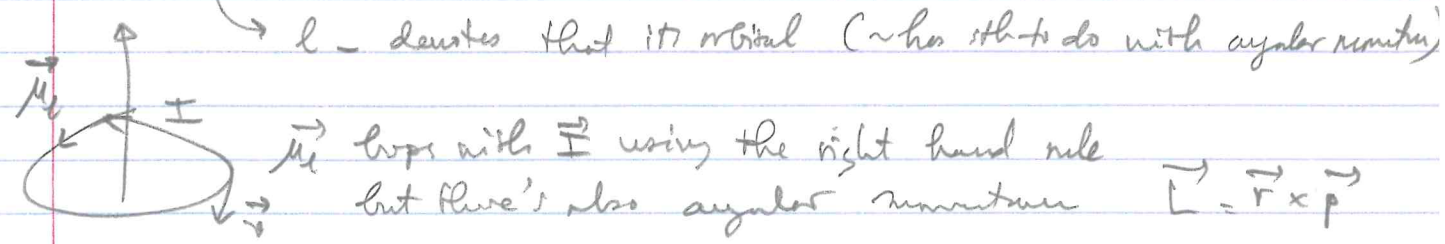 l - denotes that it's orbital (~ has sth to do with angular momentum)
μ⃗_l I
μ⃗_l loops with I⃗ using the right hand rule
but there's also angular momentum L⃗ = r⃗ × p⃗
v⃗